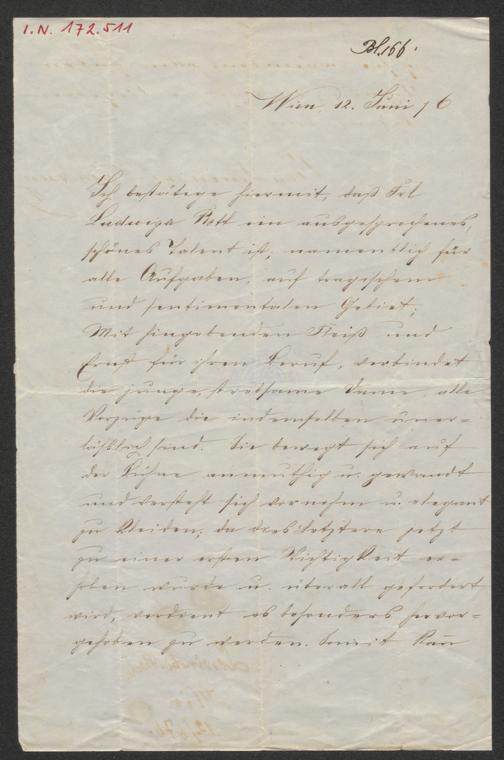 I.N. 172.511
Bl. 166.
Wien 12. Juni 76
Ich bestätige hiermit, daß Frl
Ludwiga Rott ein ausgesprochenes,
schönes Talent ist, namentlich für
alle Aufgaben, auf tragischem
und sentimentalen Gebiet;
Mit hingebenden Fleiß und
Ernst für ihren Beruf, verbindet
die junge, strebsame Dame alle
Vorzüge die indemselben uner-
läßlich sind. Sie bewegt sich auf
der Bühne anmuthig u. gewandt
und versteht sich vornehm u. elegant
zu kleiden; da dies letztere jetzt
zu einer ersten Wichtigkeit er-
hoben wurde u. überall gefordert
wird, verdient es besonders hervor-
gehoben zu werden. Somit kann